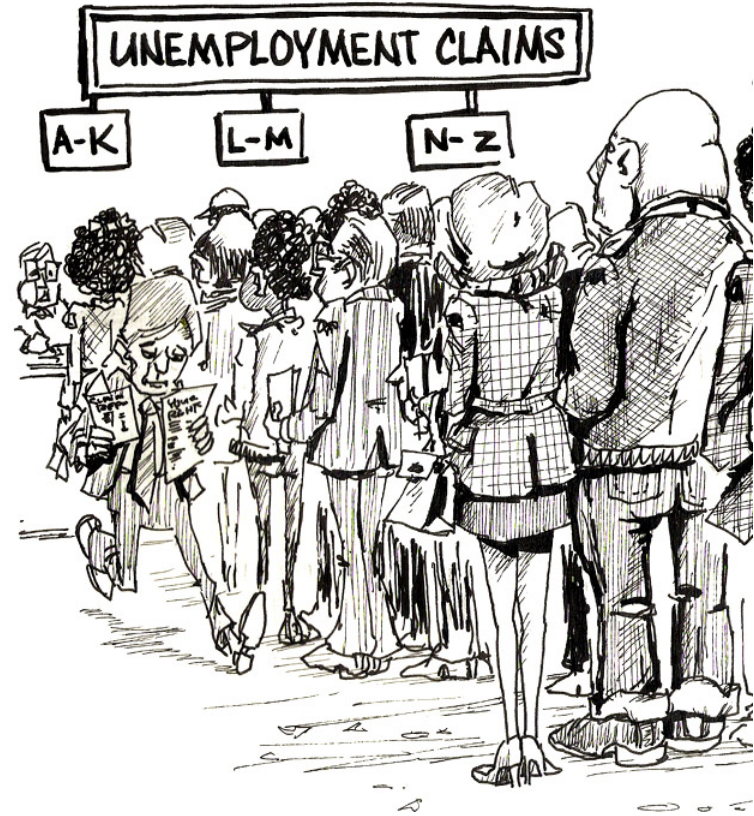 UNEMPLOYMENT CLAIMS
A-K
L-M
N-Z
CLAIM
YOUR
RIGHTS